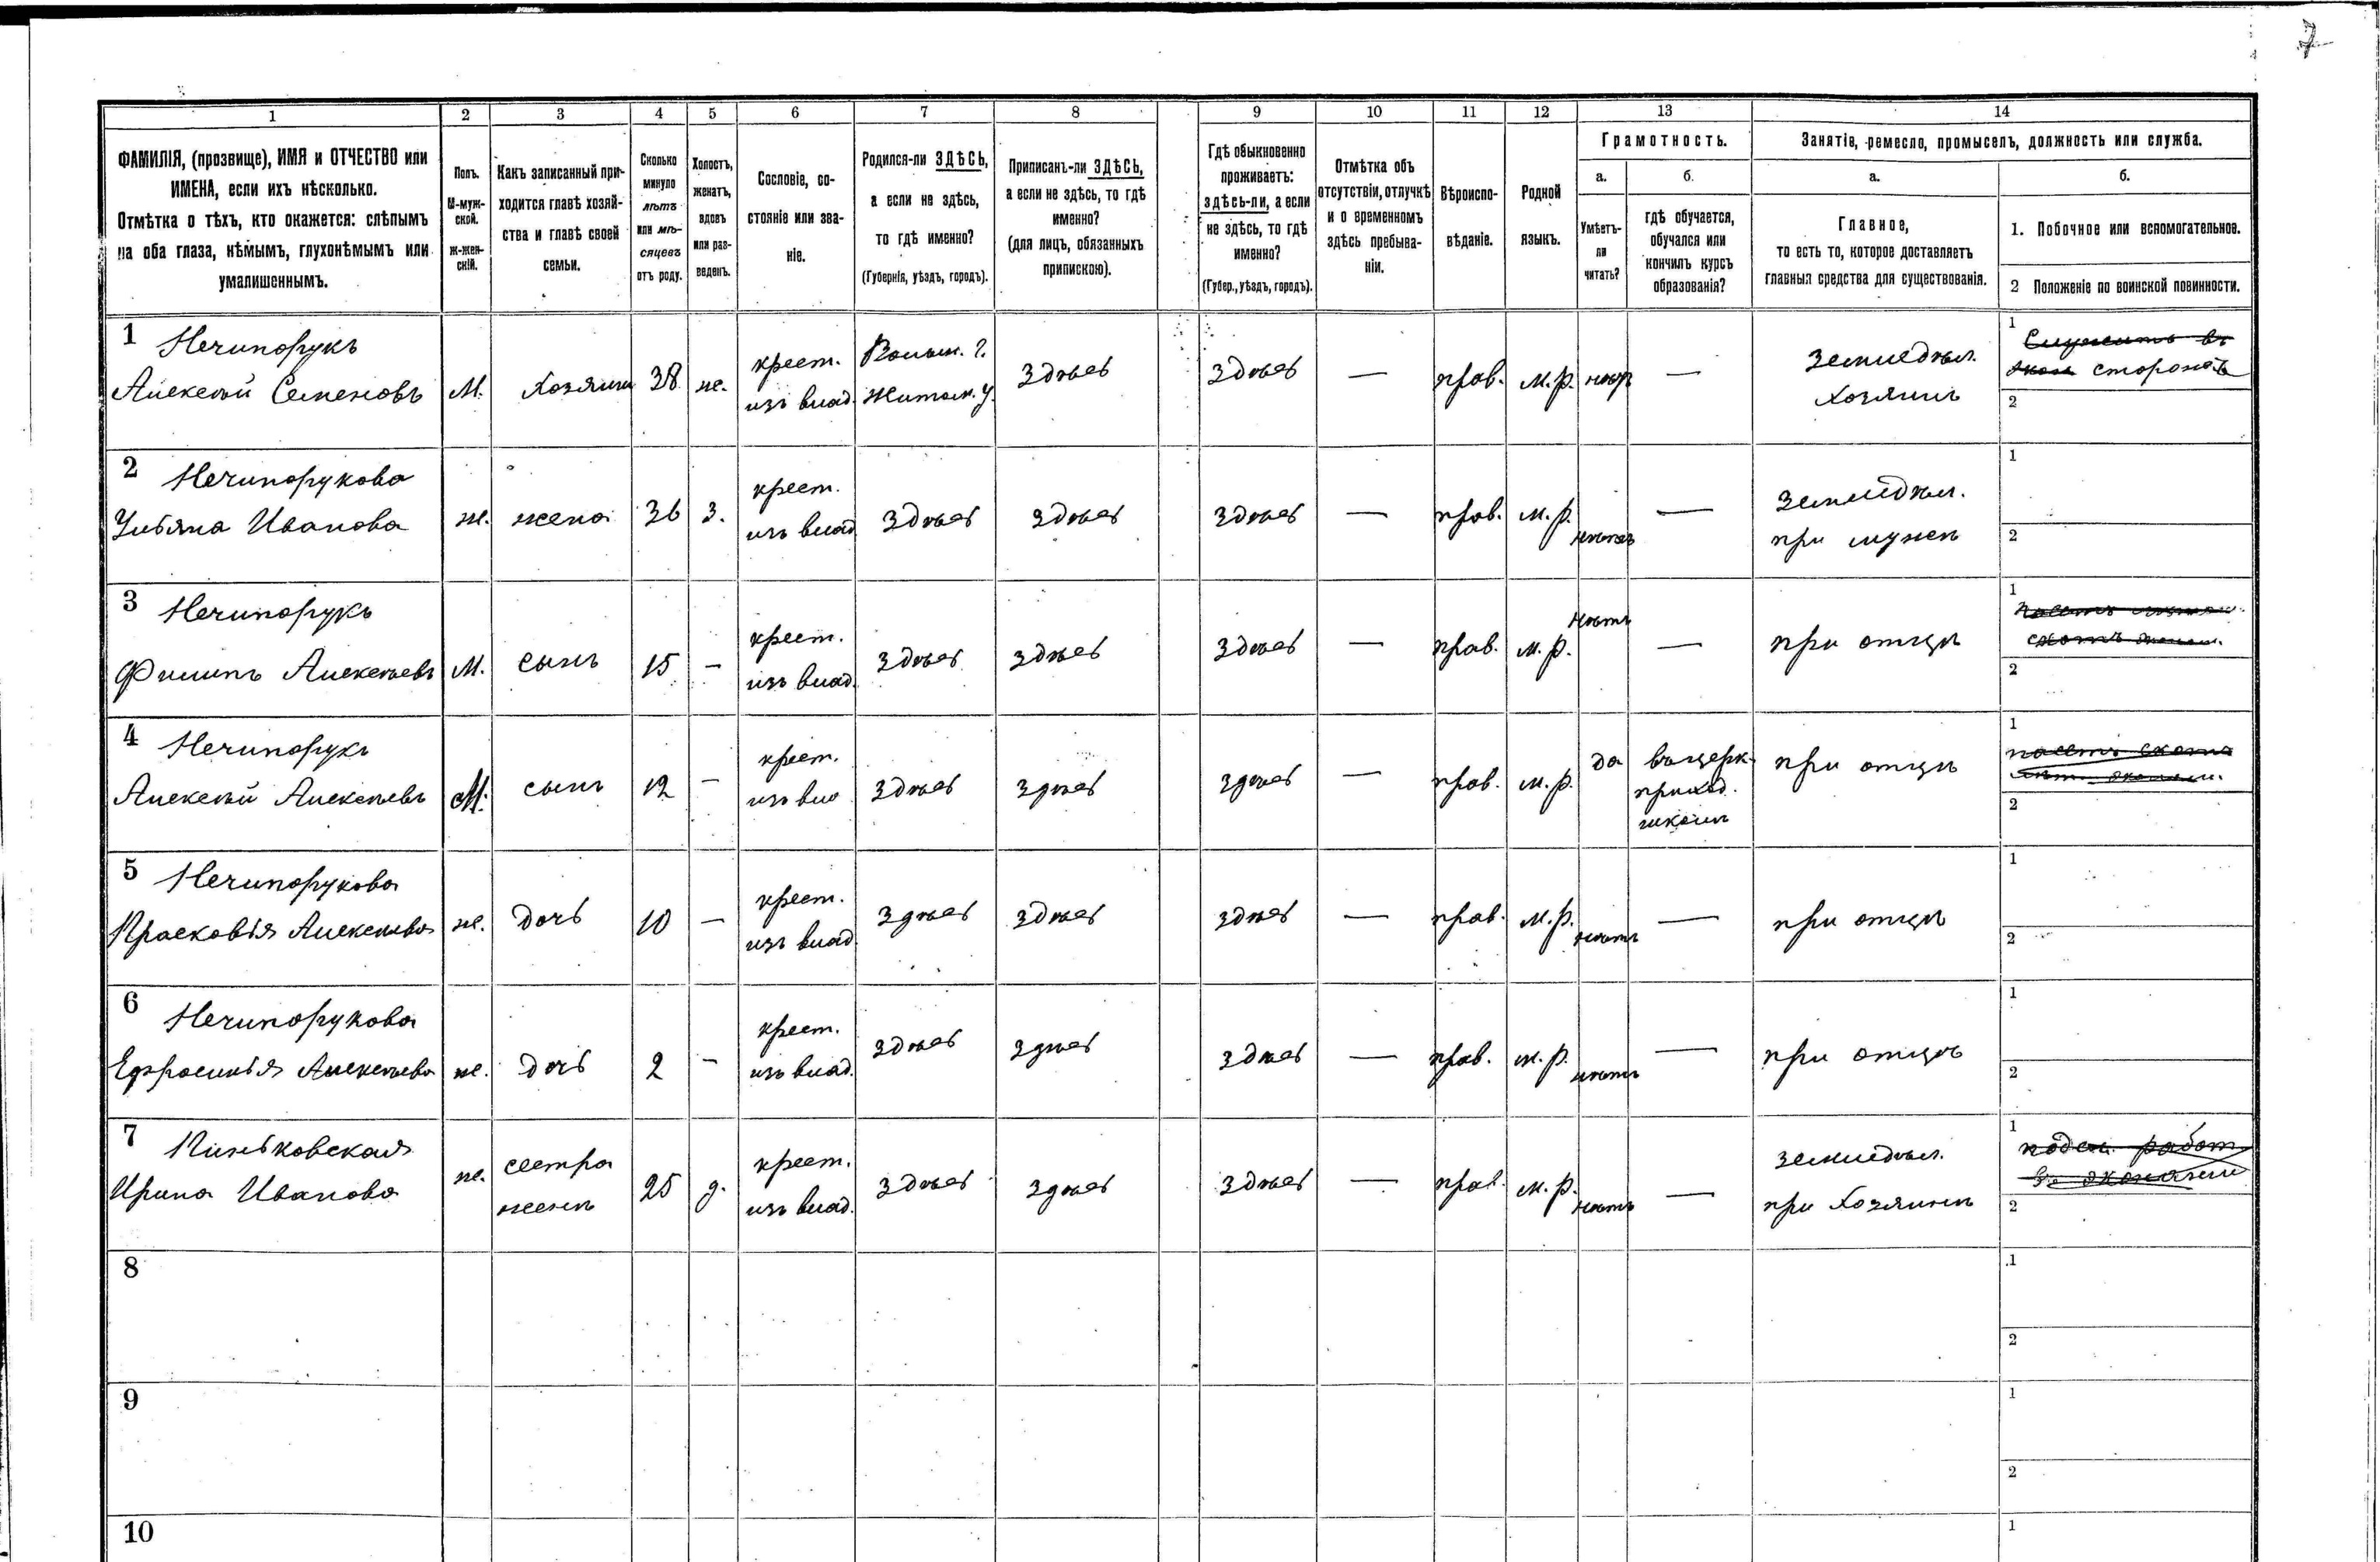 7
1
2
3
4
5
6
7
8
9
10
11
12
13
14
ФАМИЛІЯ, (прозвище), ИМЯ и ОТЧЕСТВО или
ИМЕНА, если ихъ нѣсколько.
Отмѣтка о тѣхъ, кто окажется: слѣпымъ
на оба глаза, нѣмымъ, глухонѣмымъ или
умалишеннымъ.
Полъ.
М-муж-
ской.
ж-жен-
скій.
Какъ записанный при-
ходится главѣ хозяй-
ства и главѣ своей
семьи.
Сколько
минуло
лѣтъ
или мѣ-
сяцевъ
отъ роду.
Холостъ,
женатъ,
вдовъ
или раз-
веденъ.
Сословіе, со-
стояніе или зва-
ніе.
Родился-ли ЗДѢСЬ,
а если не здѣсь,
то гдѣ именно?
(Губернія, уѣздъ, городъ).
Приписанъ-ли ЗДѢСЬ,
а если не здѣсь, то гдѣ
именно?
(для лицъ, обязанныхъ
припискою).
Гдѣ обыкновенно
проживаетъ:
здѣсь-ли, а если
не здѣсь, то гдѣ
именно?
(Губер., уѣздъ, городъ).
Отмѣтка объ
отсутствіи, отлучкѣ
и о временномъ
здѣсь пребыва-
ніи.
Вѣроиспо-
вѣданіе.
Родной
языкъ.
Грамотность.
а.
Умѣетъ-
ли
читать?
б.
гдѣ обучается,
обучался или
кончилъ курсъ
образованія?
Занятіе, ремесло, промыселъ, должность или служба.
а.
Главное,
то есть то, которое доставляетъ
главныя средства для существованія.
б.
1. Побочное или вспомогательное.
2 Положеніе по воинской повинности.
1 Нечипорукъ
Алексѣй Семеновъ
М.
Хозяинъ
38
же.
крест.
изъ влад.
Волын. г.
Житом. у.
здѣсь
здѣсь
—
прав.
м. р.
нѣтъ
—
земледѣл.
хозяинъ
1
Служитъ въ
сторожъ
2
2 Нечипорукова
Ульяна Иванова
ж.
жена
36
з.
крест.
изъ влад
здѣсь
здѣсь
здѣсь
—
прав.
м. р.
нѣтъ
—
земледѣл.
при мужѣ
1
2
3 Нечипорукъ
Филипъ Алексѣевъ
М.
сынъ
15
—
крест.
изъ влад.
здѣсь
здѣсь
здѣсь
—
прав.
м. р.
нѣтъ
—
при отцѣ
1
пасетъ
скотъ эконом.
2
4 Нечипорукъ
Алексѣй Алексѣевъ
М.
сынъ
12
—
крест.
изъ вла
здѣсь
здѣсь
здѣсь
—
прав.
м. р.
да
въ церк.
приход.
школѣ
при отцѣ
1
пасетъ скотъ
эконом.
2
5 Нечипорукова
Прасковія Алексѣева
ж.
дочь
10
—
крест.
изъ влад.
здѣсь
здѣсь
здѣсь
—
прав.
м. р.
нѣтъ
—
при отцѣ
1
2
6 Нечипорукова
Ефросинья Алексѣева
ж.
дочь
2
—
крест.
изъ влад.
здѣсь
здѣсь
здѣсь
—
прав.
м. р.
нѣтъ
—
при отцѣ
1
2
7 Пиньковская
Ирина Иванова
ж.
сестра
жены
25
д.
крест.
изъ влад.
здѣсь
здѣсь
здѣсь
—
прав.
м. р.
нѣтъ
—
земледѣл.
при хозяинѣ
1
поден. работ
въ экономіи
2
8
1
2
9
1
2
10
1